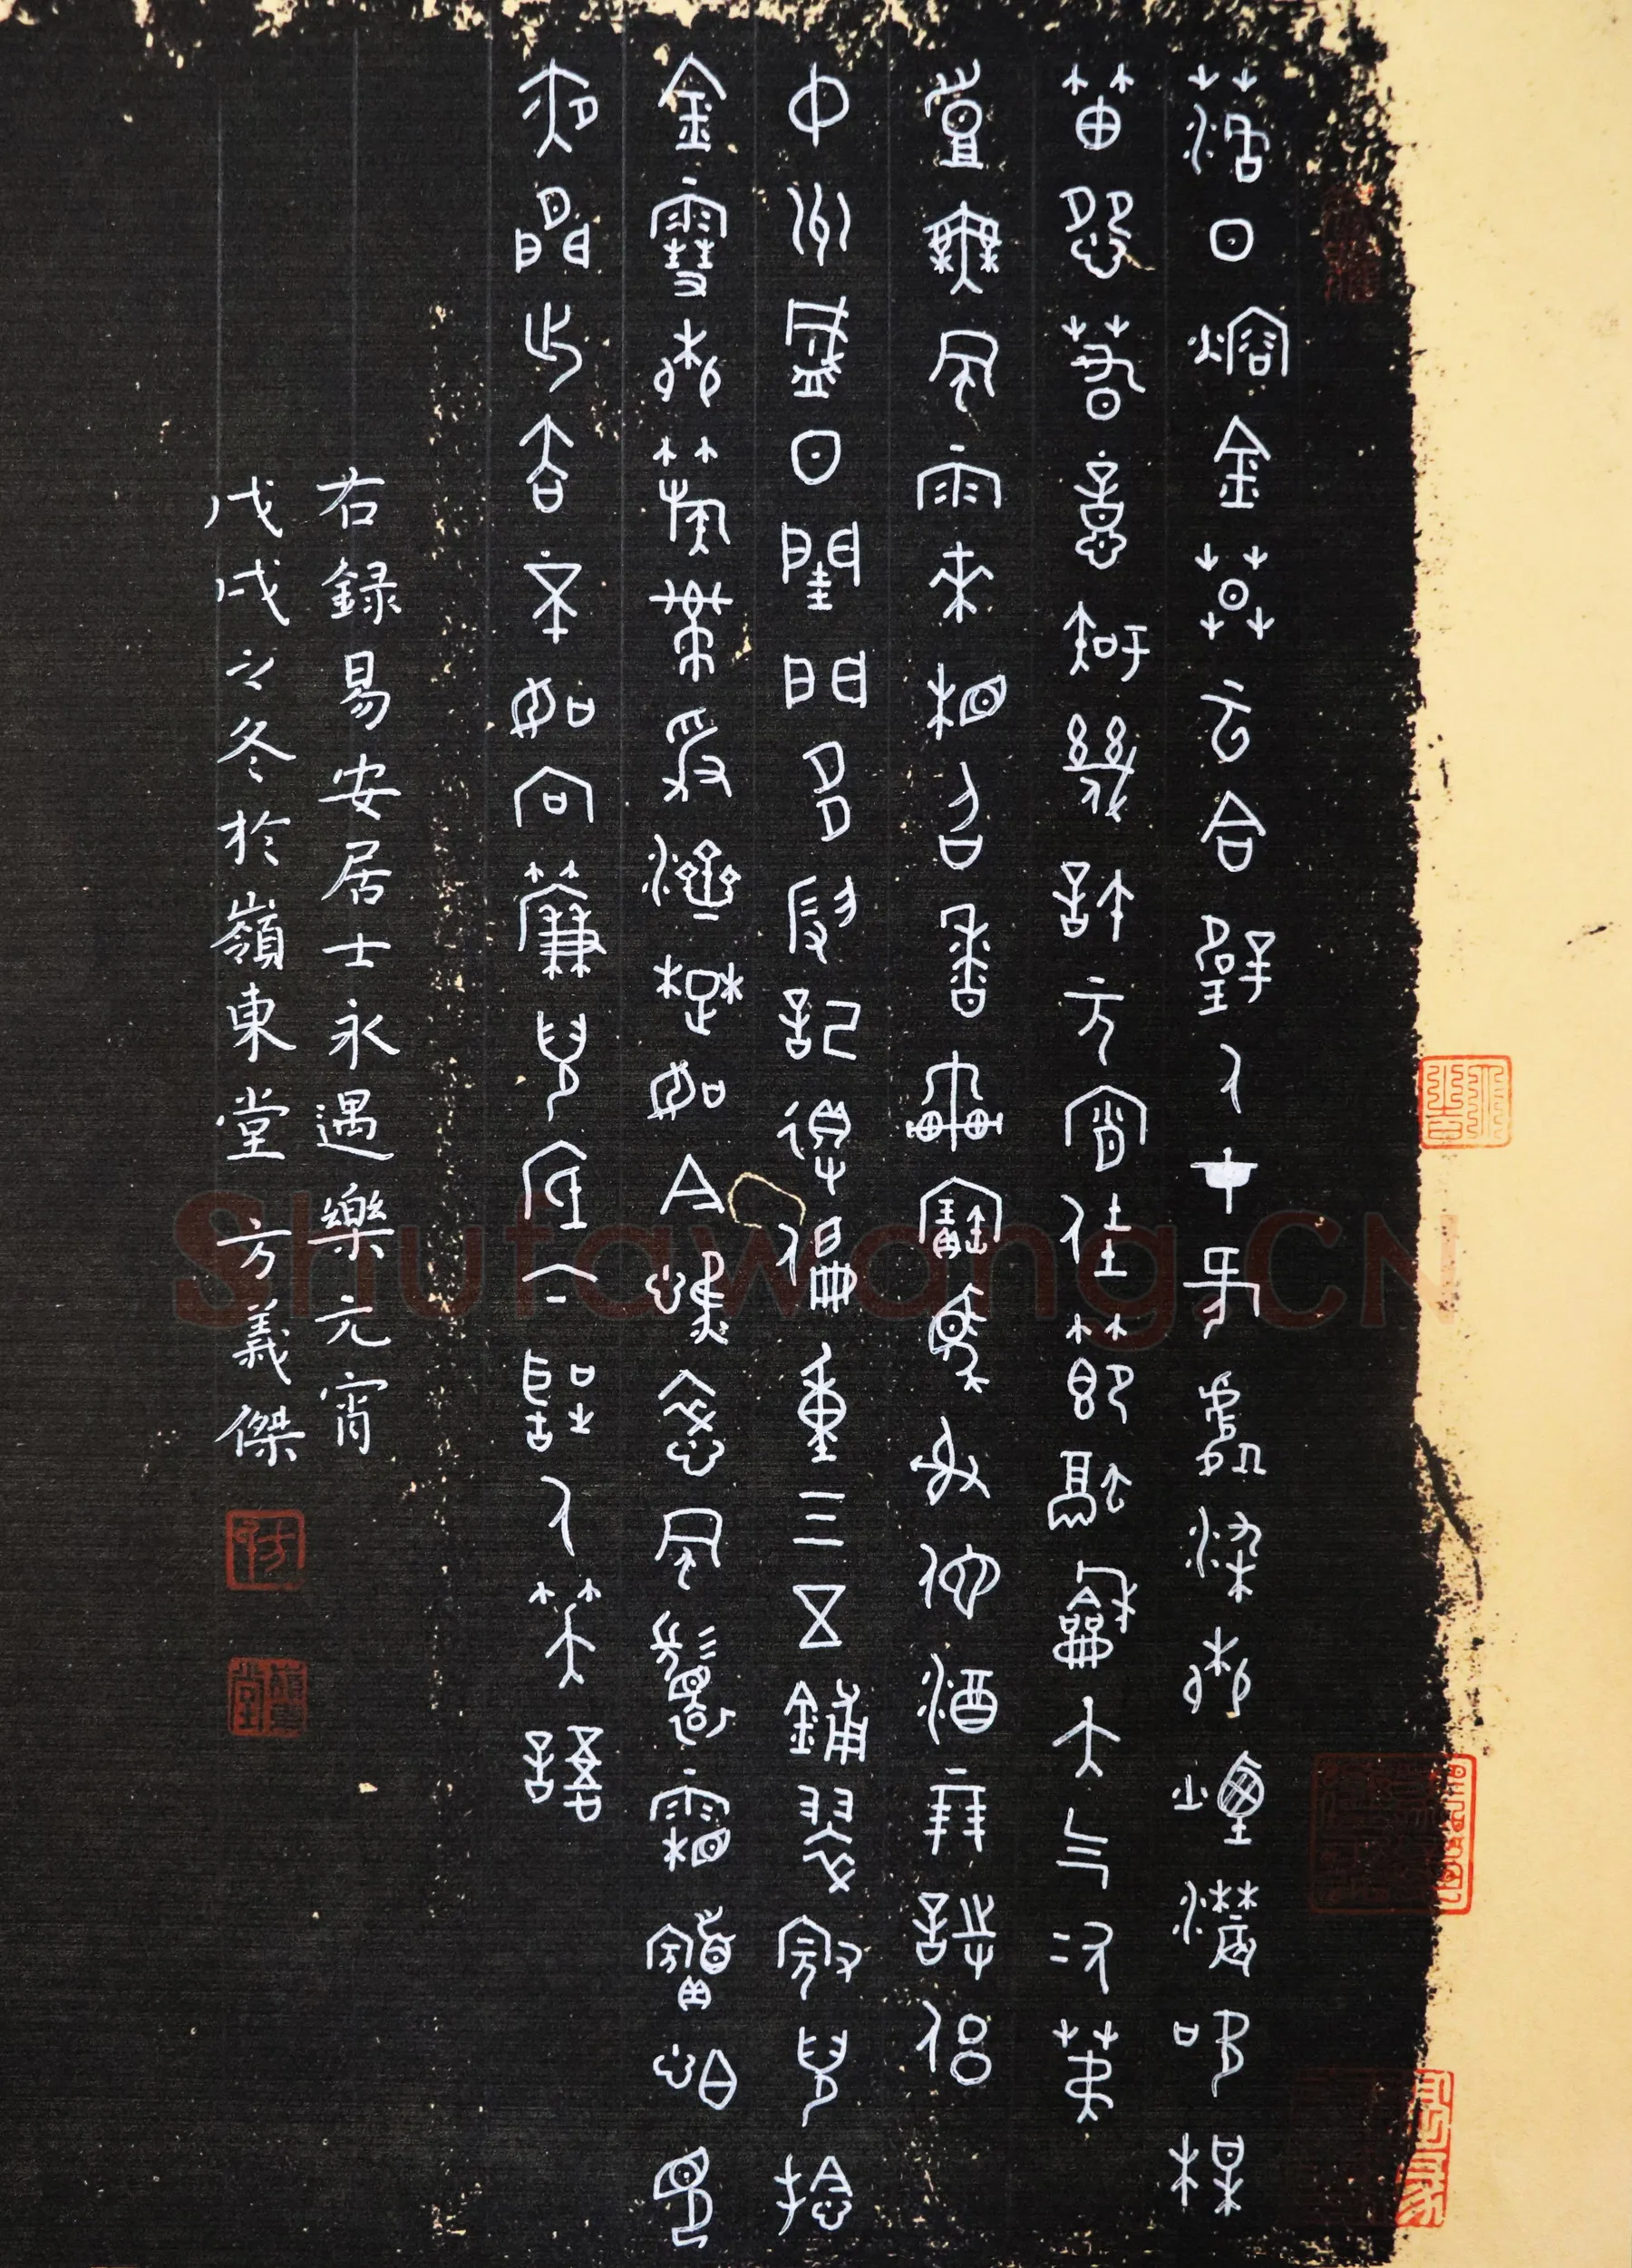 落日熔金莫云合璧人才何處染柳煙濃吹梅
笛怨春意知幾許元宵佳節融和天气次第
豈無風雨來相召香車寶馬謝他酒朋詩侶
中州盛日閨門多暇記得偏重三五鋪翠冠兒捻
金雪柳簇帶爭濟楚如今憔悴風鬟霜鬢怕見
夜間出去不如向簾兒底下聽人笑語
右録易安居士永遇樂元宵
戊戌之冬於嶺東堂 方義傑
Shufawang.CN